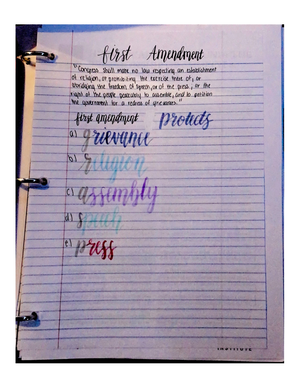 first Amendment
"Congress shall make no law respecting an establishment
of religion, or prohibiting the exercise there of; or
abridging the freedom of speech, or of the press; or the
right of the people peaceably to assemble, and to petition
the government for a redress of grievances."
first amendment protects
a) grievance
b) religion
c) assembly
d) speech
e) press